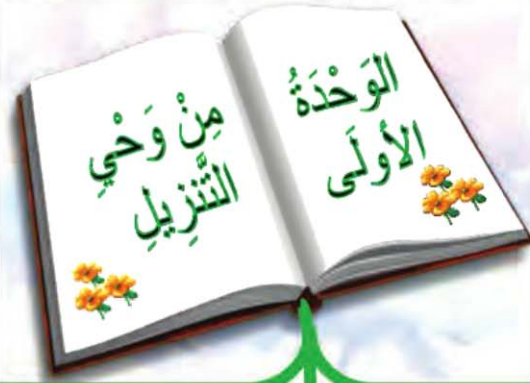 الوَحْدَةُ
الأولَى
مِنْ وَحْيِ
التَّنزِيلِ